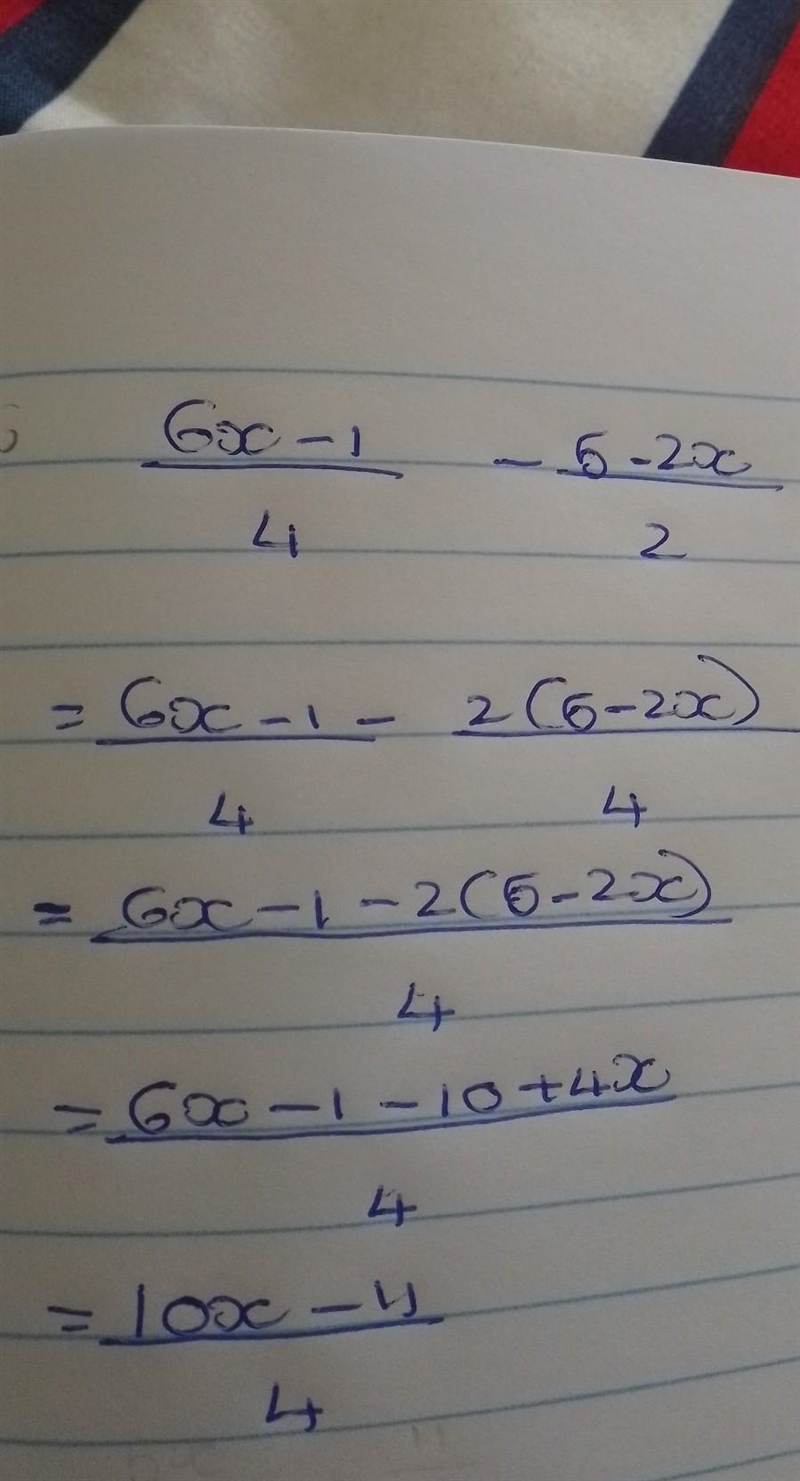 6x - 1 - 5 - 2x
4 2
= 6x - 1 - 2(5 - 2x)
4 4
= 6x - 1 - 2(5 - 2x)
4
= 6x - 1 - 10 + 4x
4
= 10x - 11
4